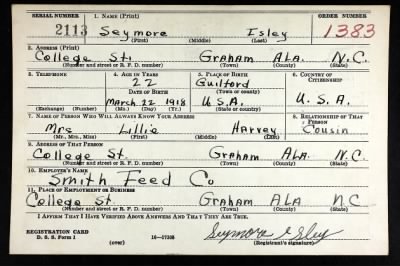 SERIAL NUMBER 1. NAME (Print) ORDER NUMBER
2113 Seymore Isley 1383
(First) (Middle) (Last)
2. ADDRESS (Print)
College St. Graham ALA. N.C.
(Number and street or R. F. D. number) (Town) (County) (State)
3. TELEPHONE 4. AGE IN YEARS 5. PLACE OF BIRTH 6. COUNTRY OF CITIZENSHIP
22 Guilford
DATE OF BIRTH (Town or county)
March 22 1918 U.S.A. U.S.A.
(Exchange) (Number) (Mo.) (Day) (Yr.) (State or country)
7. NAME OF PERSON WHO WILL ALWAYS KNOW YOUR ADDRESS 8. RELATIONSHIP OF THAT PERSON
Mrs Lillie Harvey Cousin
(Mr., Mrs., Miss) (First) (Middle) (Last)
9. ADDRESS OF THAT PERSON
College St. Graham ALA. N.C.
(Number and street or R. F. D. number) (Town) (County) (State)
10. EMPLOYER'S NAME
Smith Feed Co
11. PLACE OF EMPLOYMENT OR BUSINESS
College St. Graham ALA N.C
(Number and street or R. F. D. number) (Town) (County) (State)
I AFFIRM THAT I HAVE VERIFIED ABOVE ANSWERS AND THAT THEY ARE TRUE.
REGISTRATION CARD
D. S. S. Form 1 (over) 16-17105 Seymore Isley
(Registrant's signature)